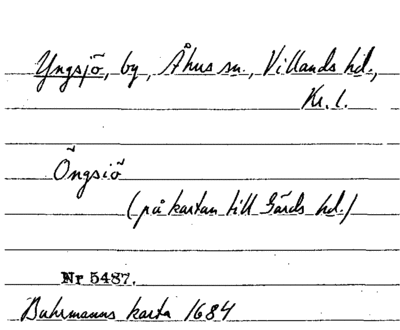 Yngsjö, by, Åhus sn., Villands hd.,
Kr. l.
Öngsiö
(på kartan till Gärds hd.)
Nr 5487.
Buhrmanns karta 1684